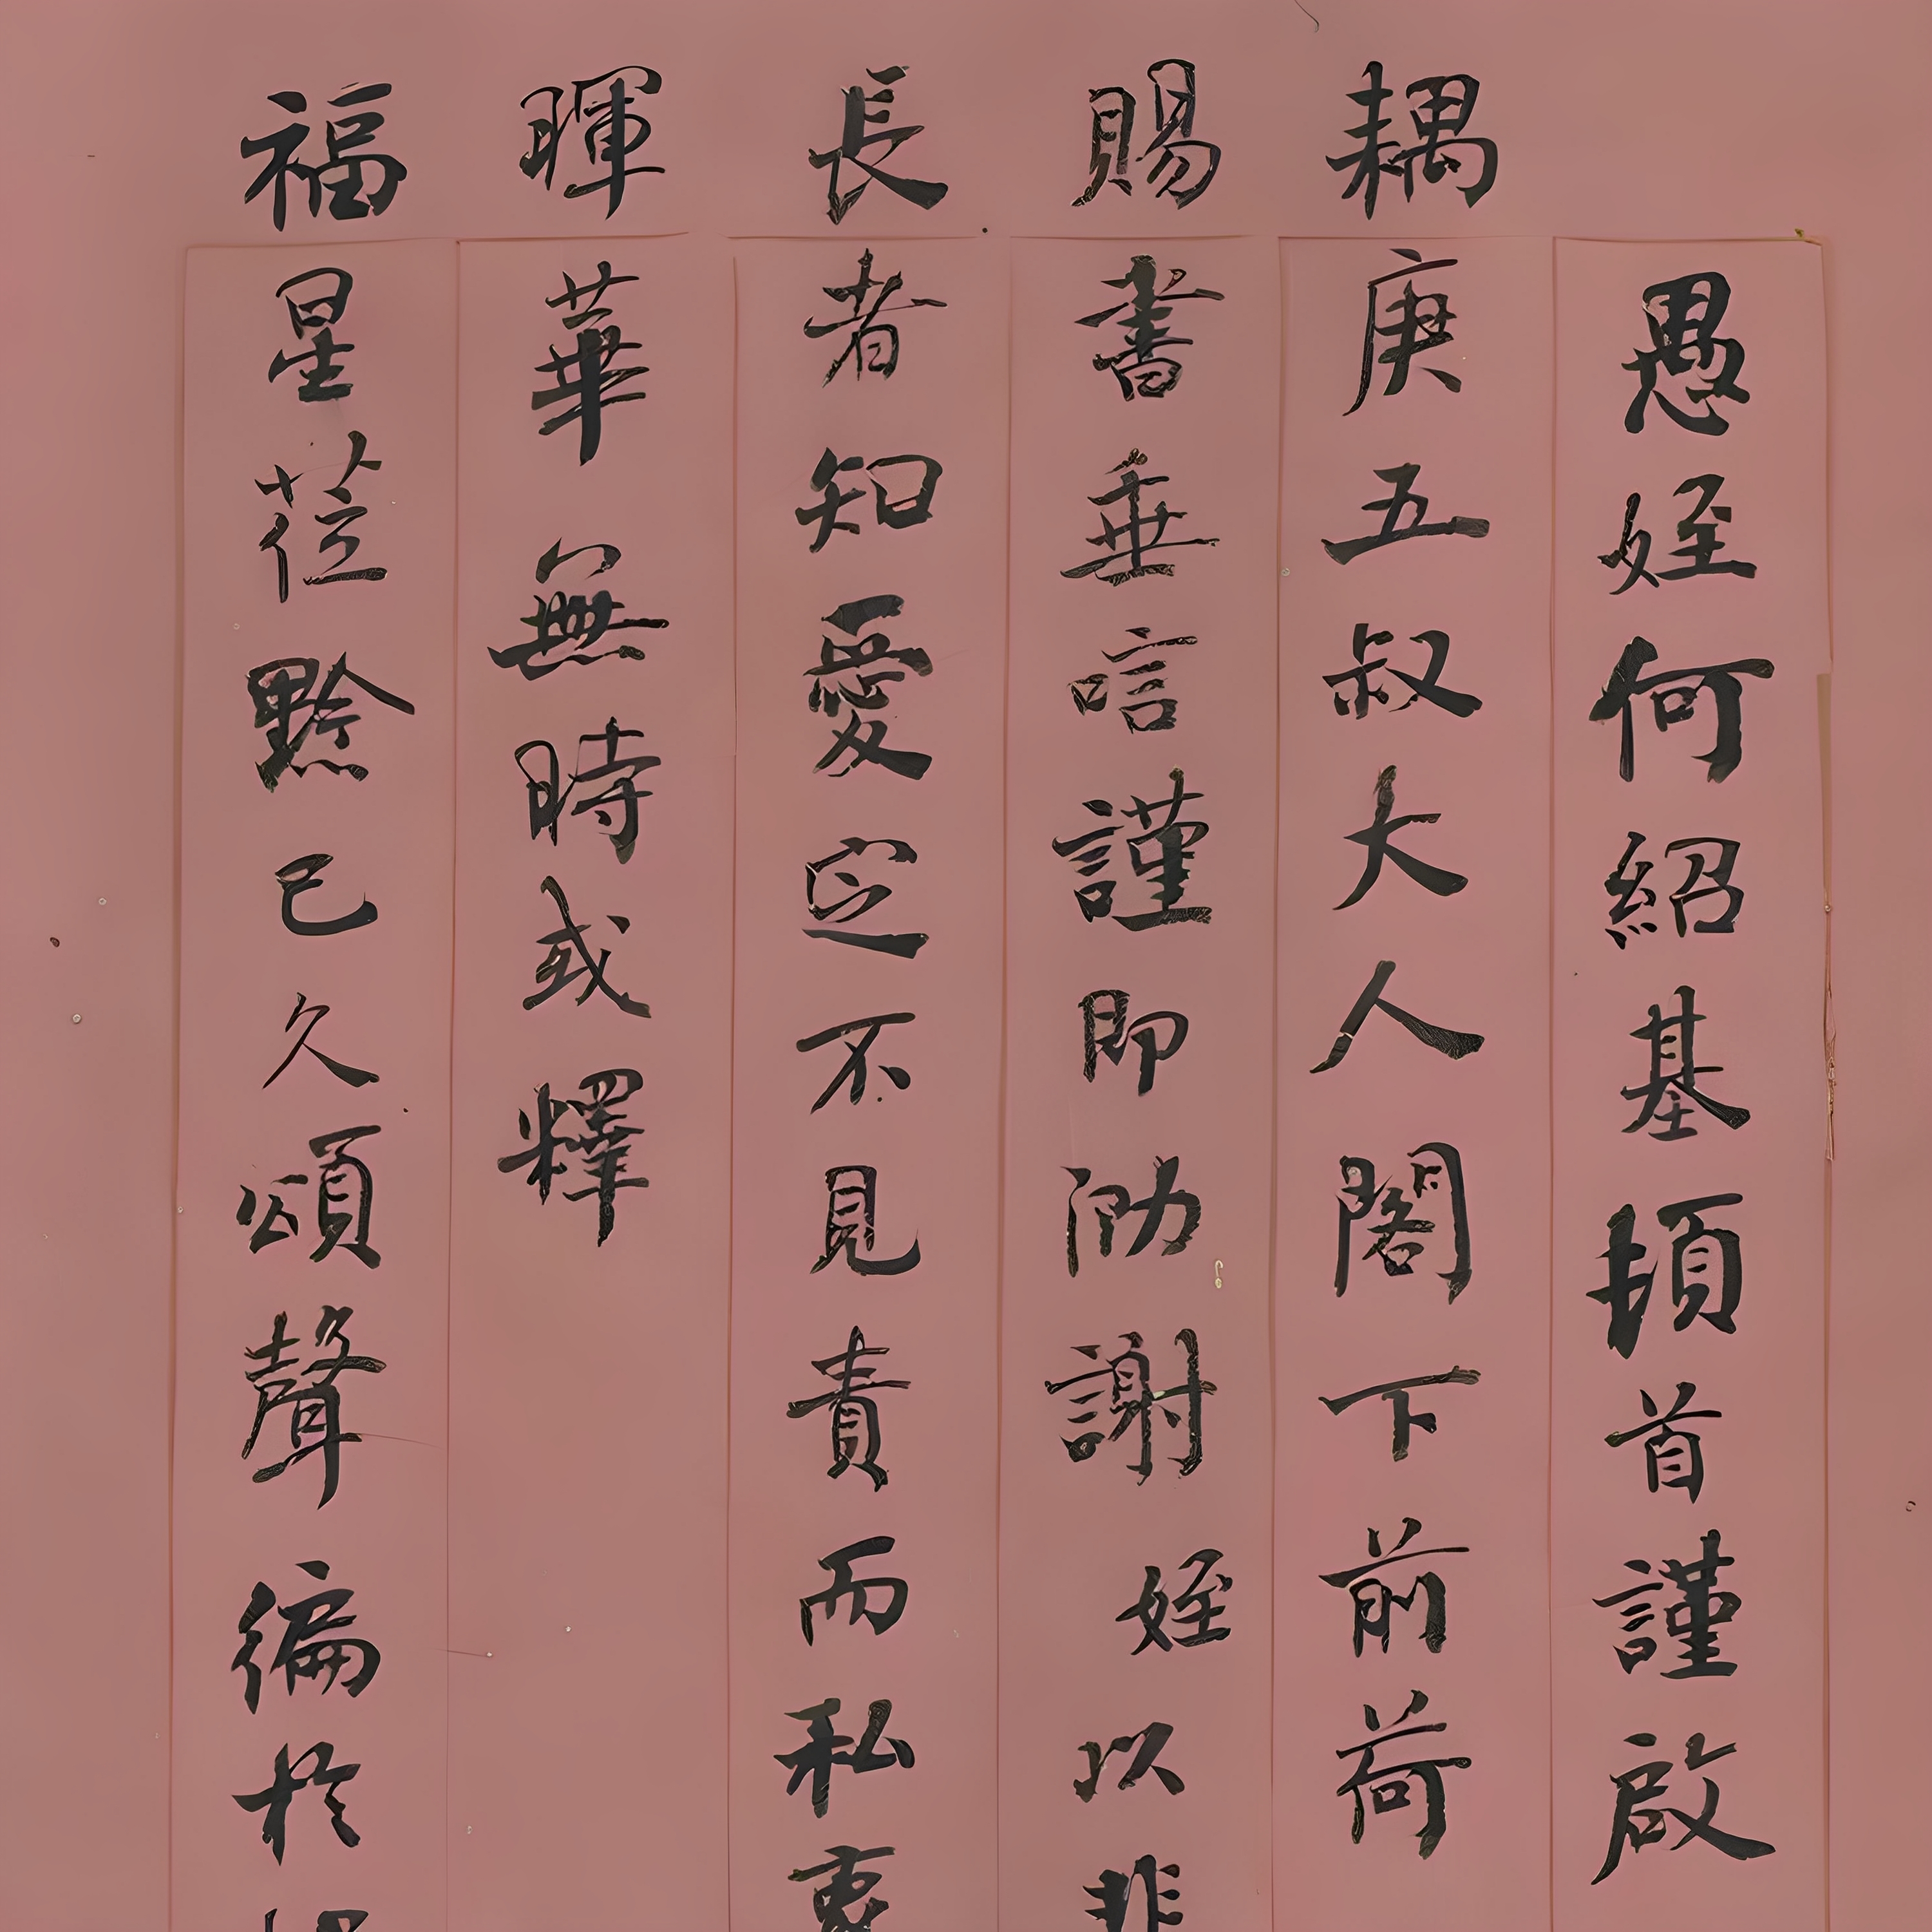 愚姪何紹基頓首謹啟
耦庚五叔大人閣下前荷
賜書垂唁謹即泐謝姪以非
長者知愛定不見責而私衷
暉華無時或釋
福星莅黔已久頌聲徧於